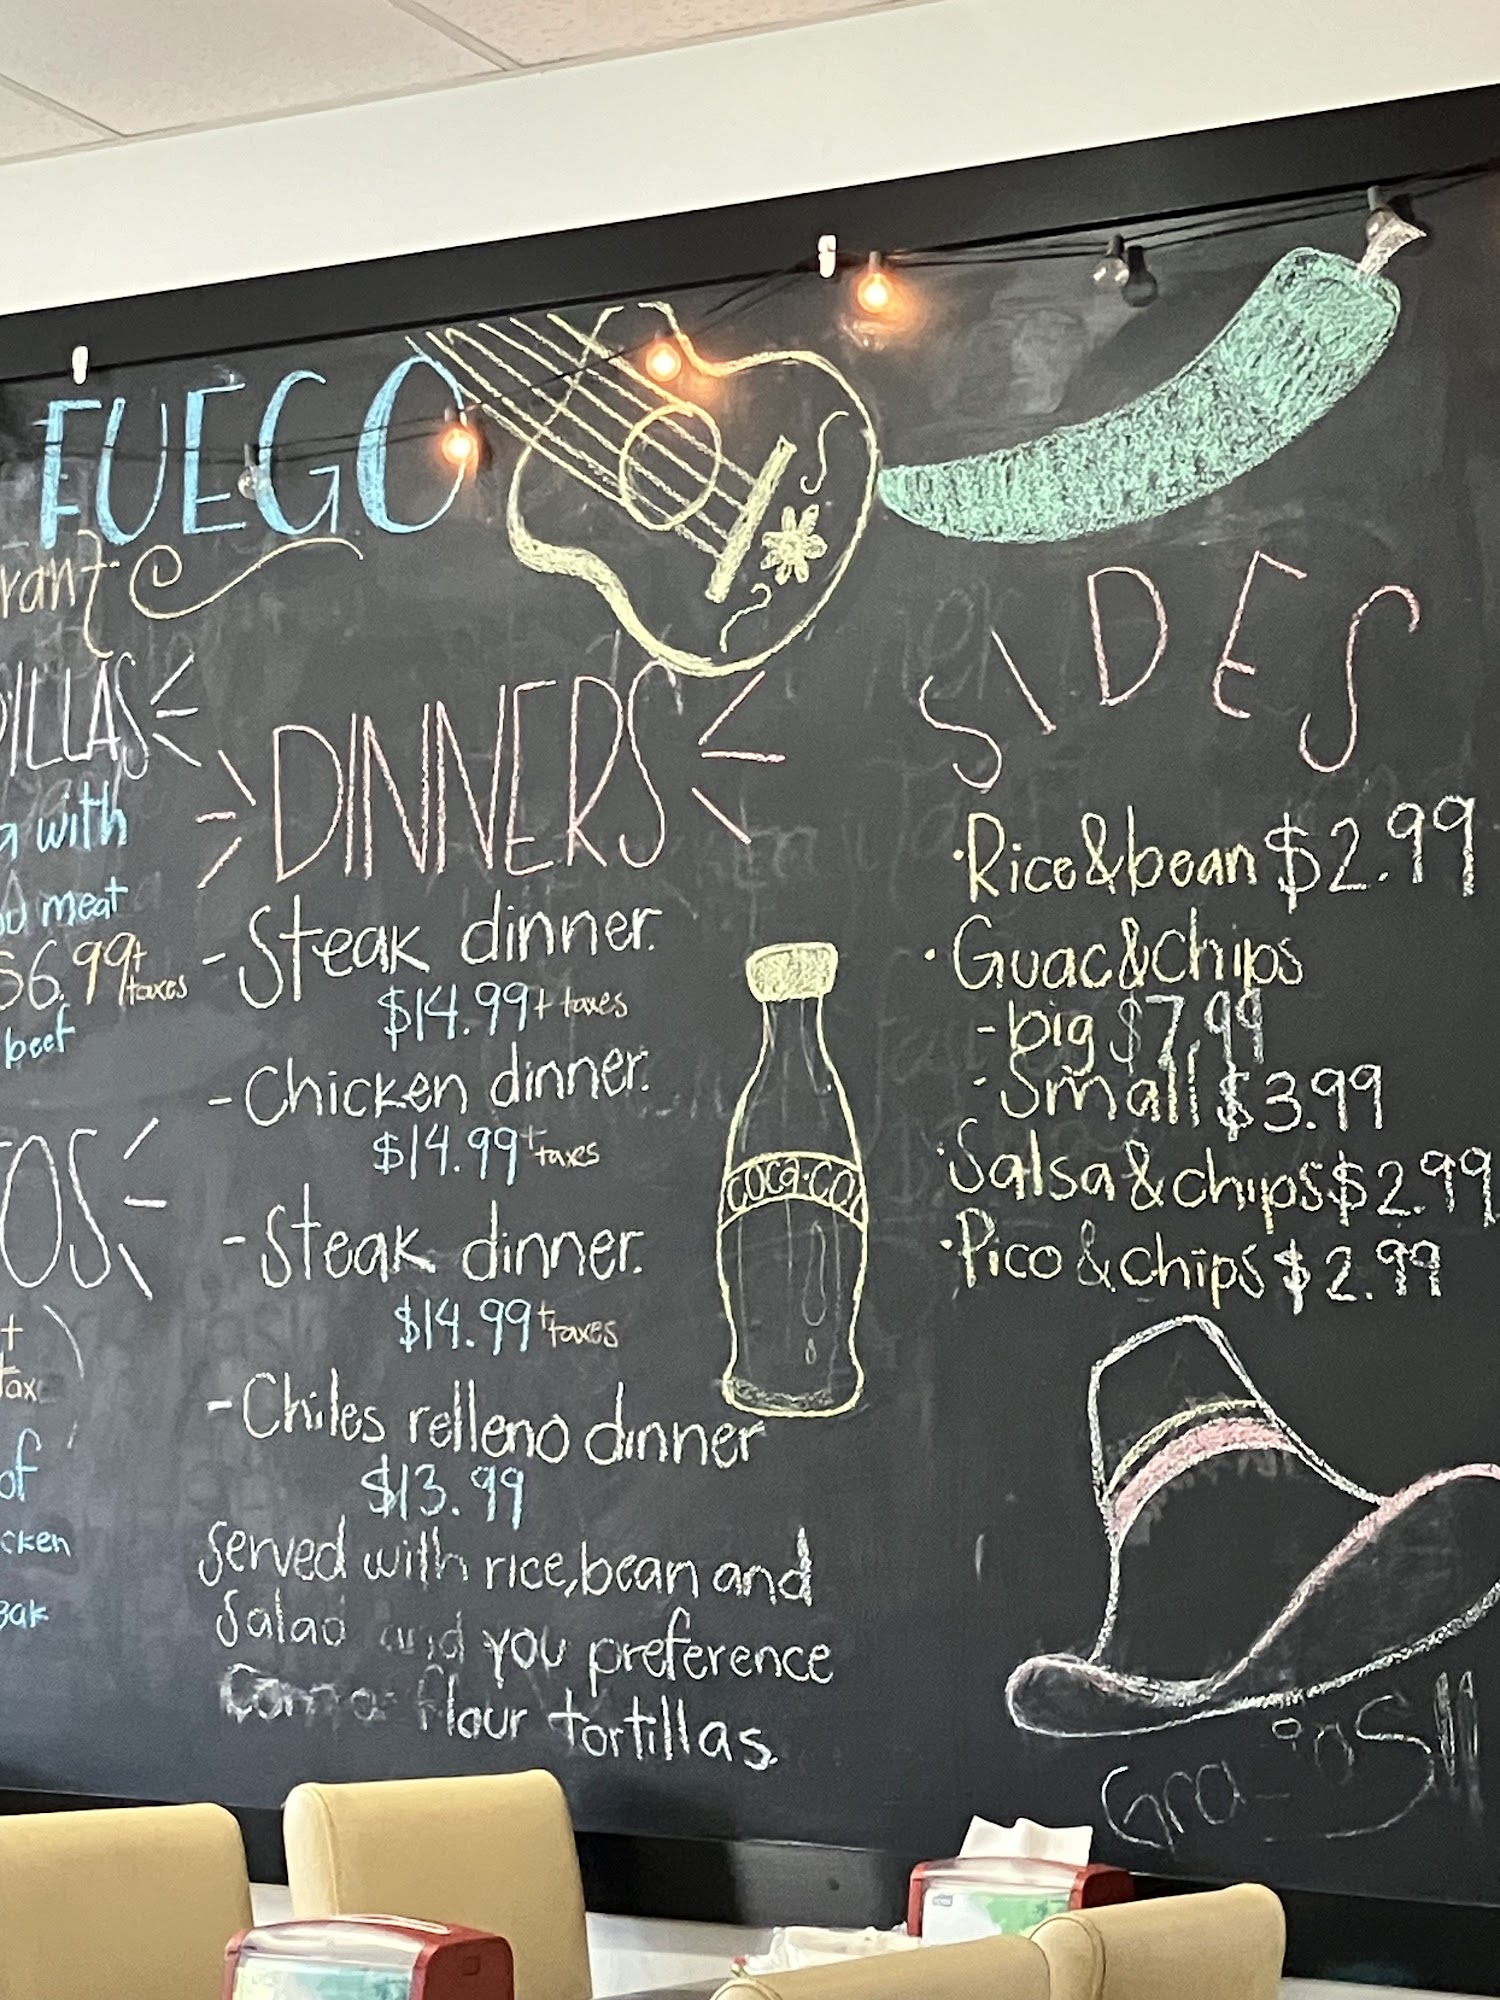 FUEGO
rant
DILLAS
a with
meat
$6.99 + taxes
beef
TOS
+
Tax
of
cken
eak
DINNERS
- Steak dinner.
$14.99 + taxes
- Chicken dinner.
$14.99 + taxes
- Steak dinner.
$14.99 + taxes
- Chiles relleno dinner
$13.99
Served with rice, bean and
Salad and you preference
flour tortillas.
COCA-CO
SIDES
• Rice & bean $2.99
• Guac & chips
- big $7.99
- Small $3.99
• Salsa & chips $2.99
• Pico & chips $2.99